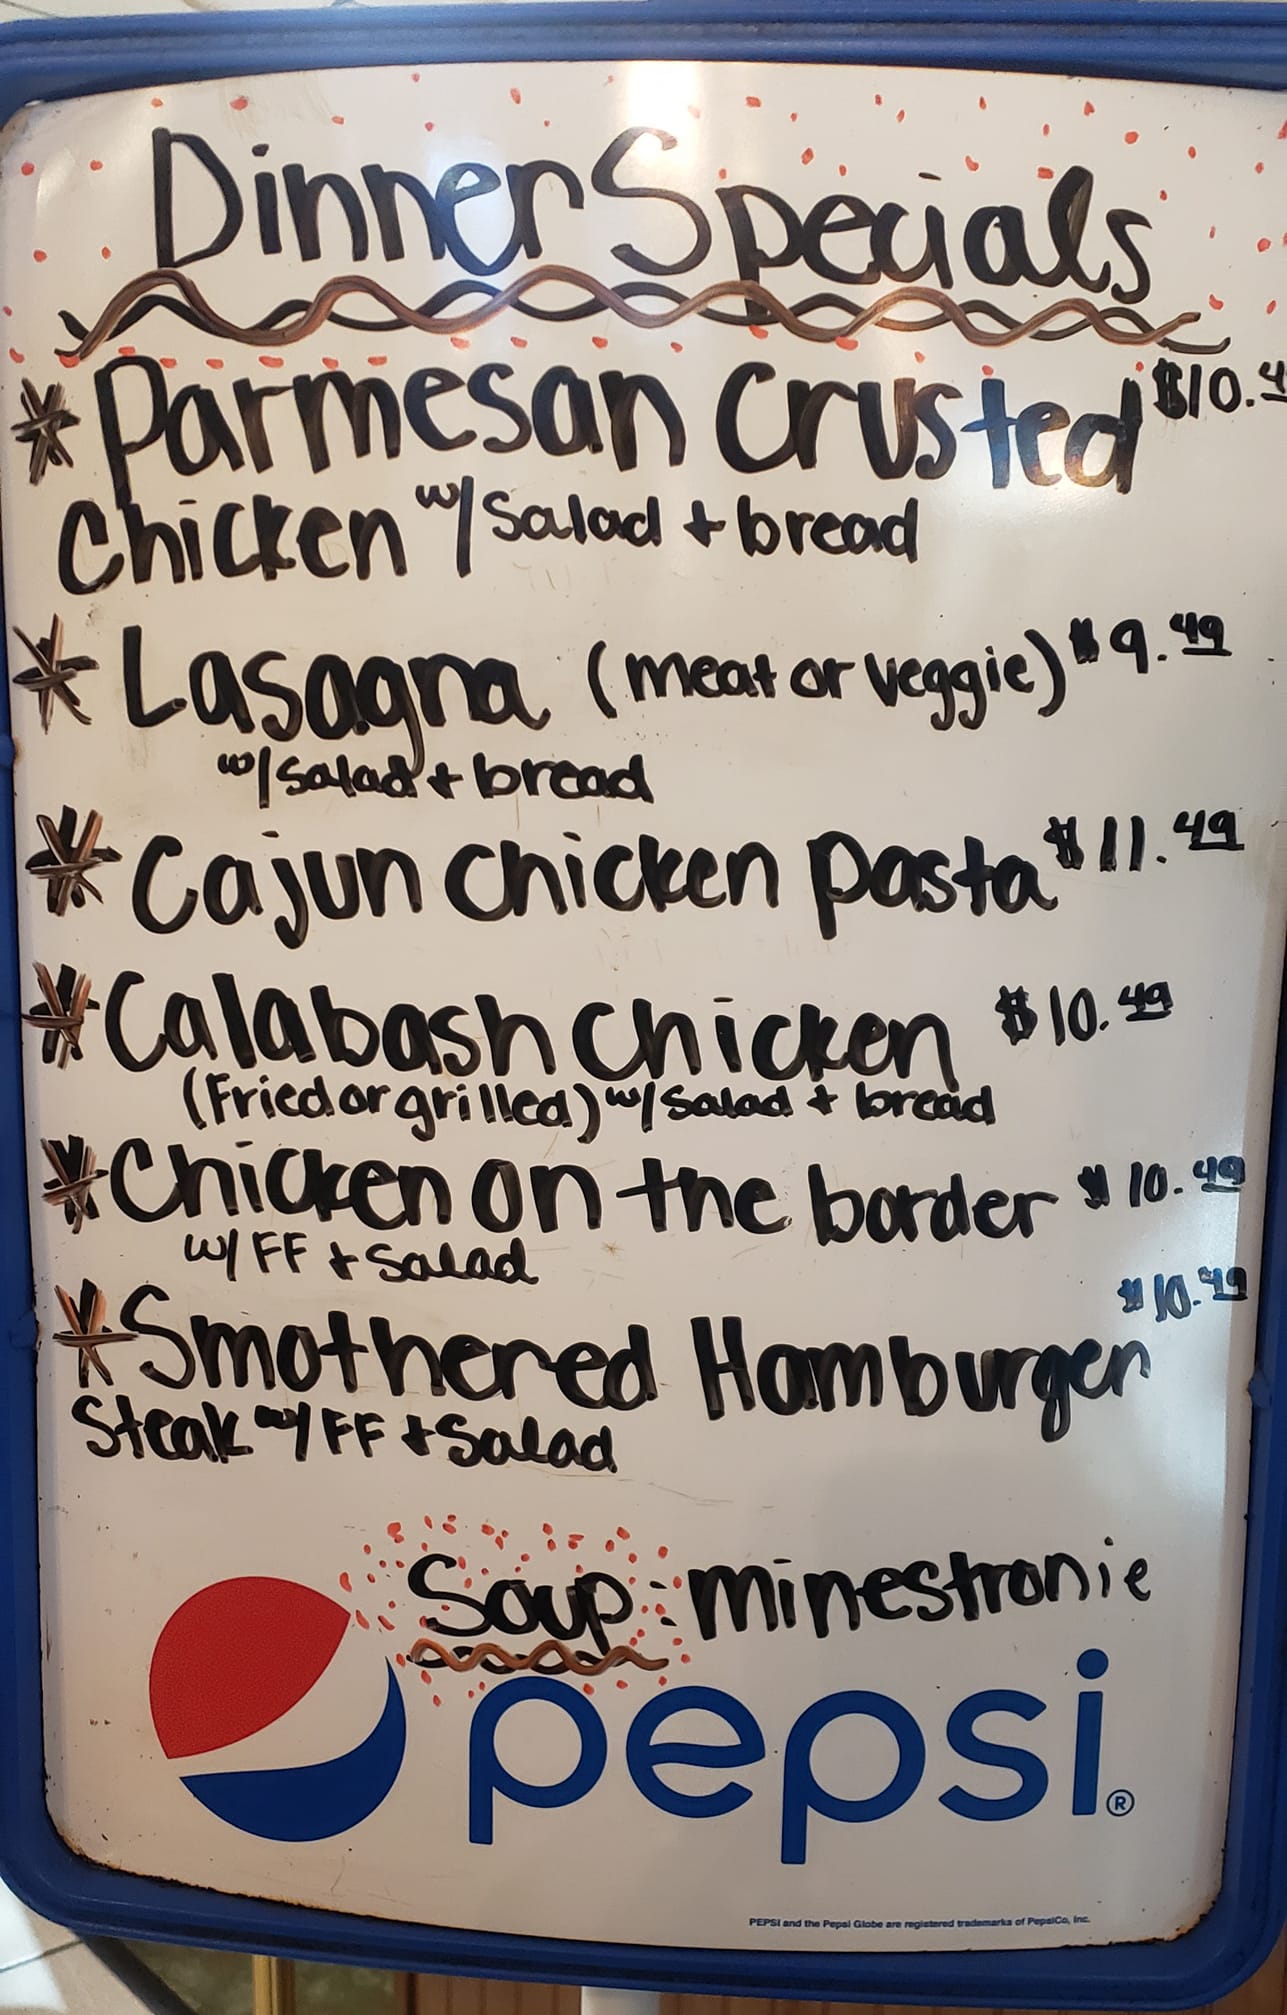 Dinner Specials
* Parmesan Crusted $10.4
Chicken w/ Salad + bread
* Lasagna (meat or veggie) $9.49
w/ Salad + bread
* Cajun Chicken pasta $11.49
* Calabash Chicken $10.49
(Fried or grilled) w/ Salad + bread
* Chicken on the border $10.49
w/ FF + Salad
$10.49
* Smothered Hamburger
Steak w/ FF + Salad
Soup: minestronie
pepsi®
PEPSI and the Pepsi Globe are registered trademarks of PepsiCo, Inc.